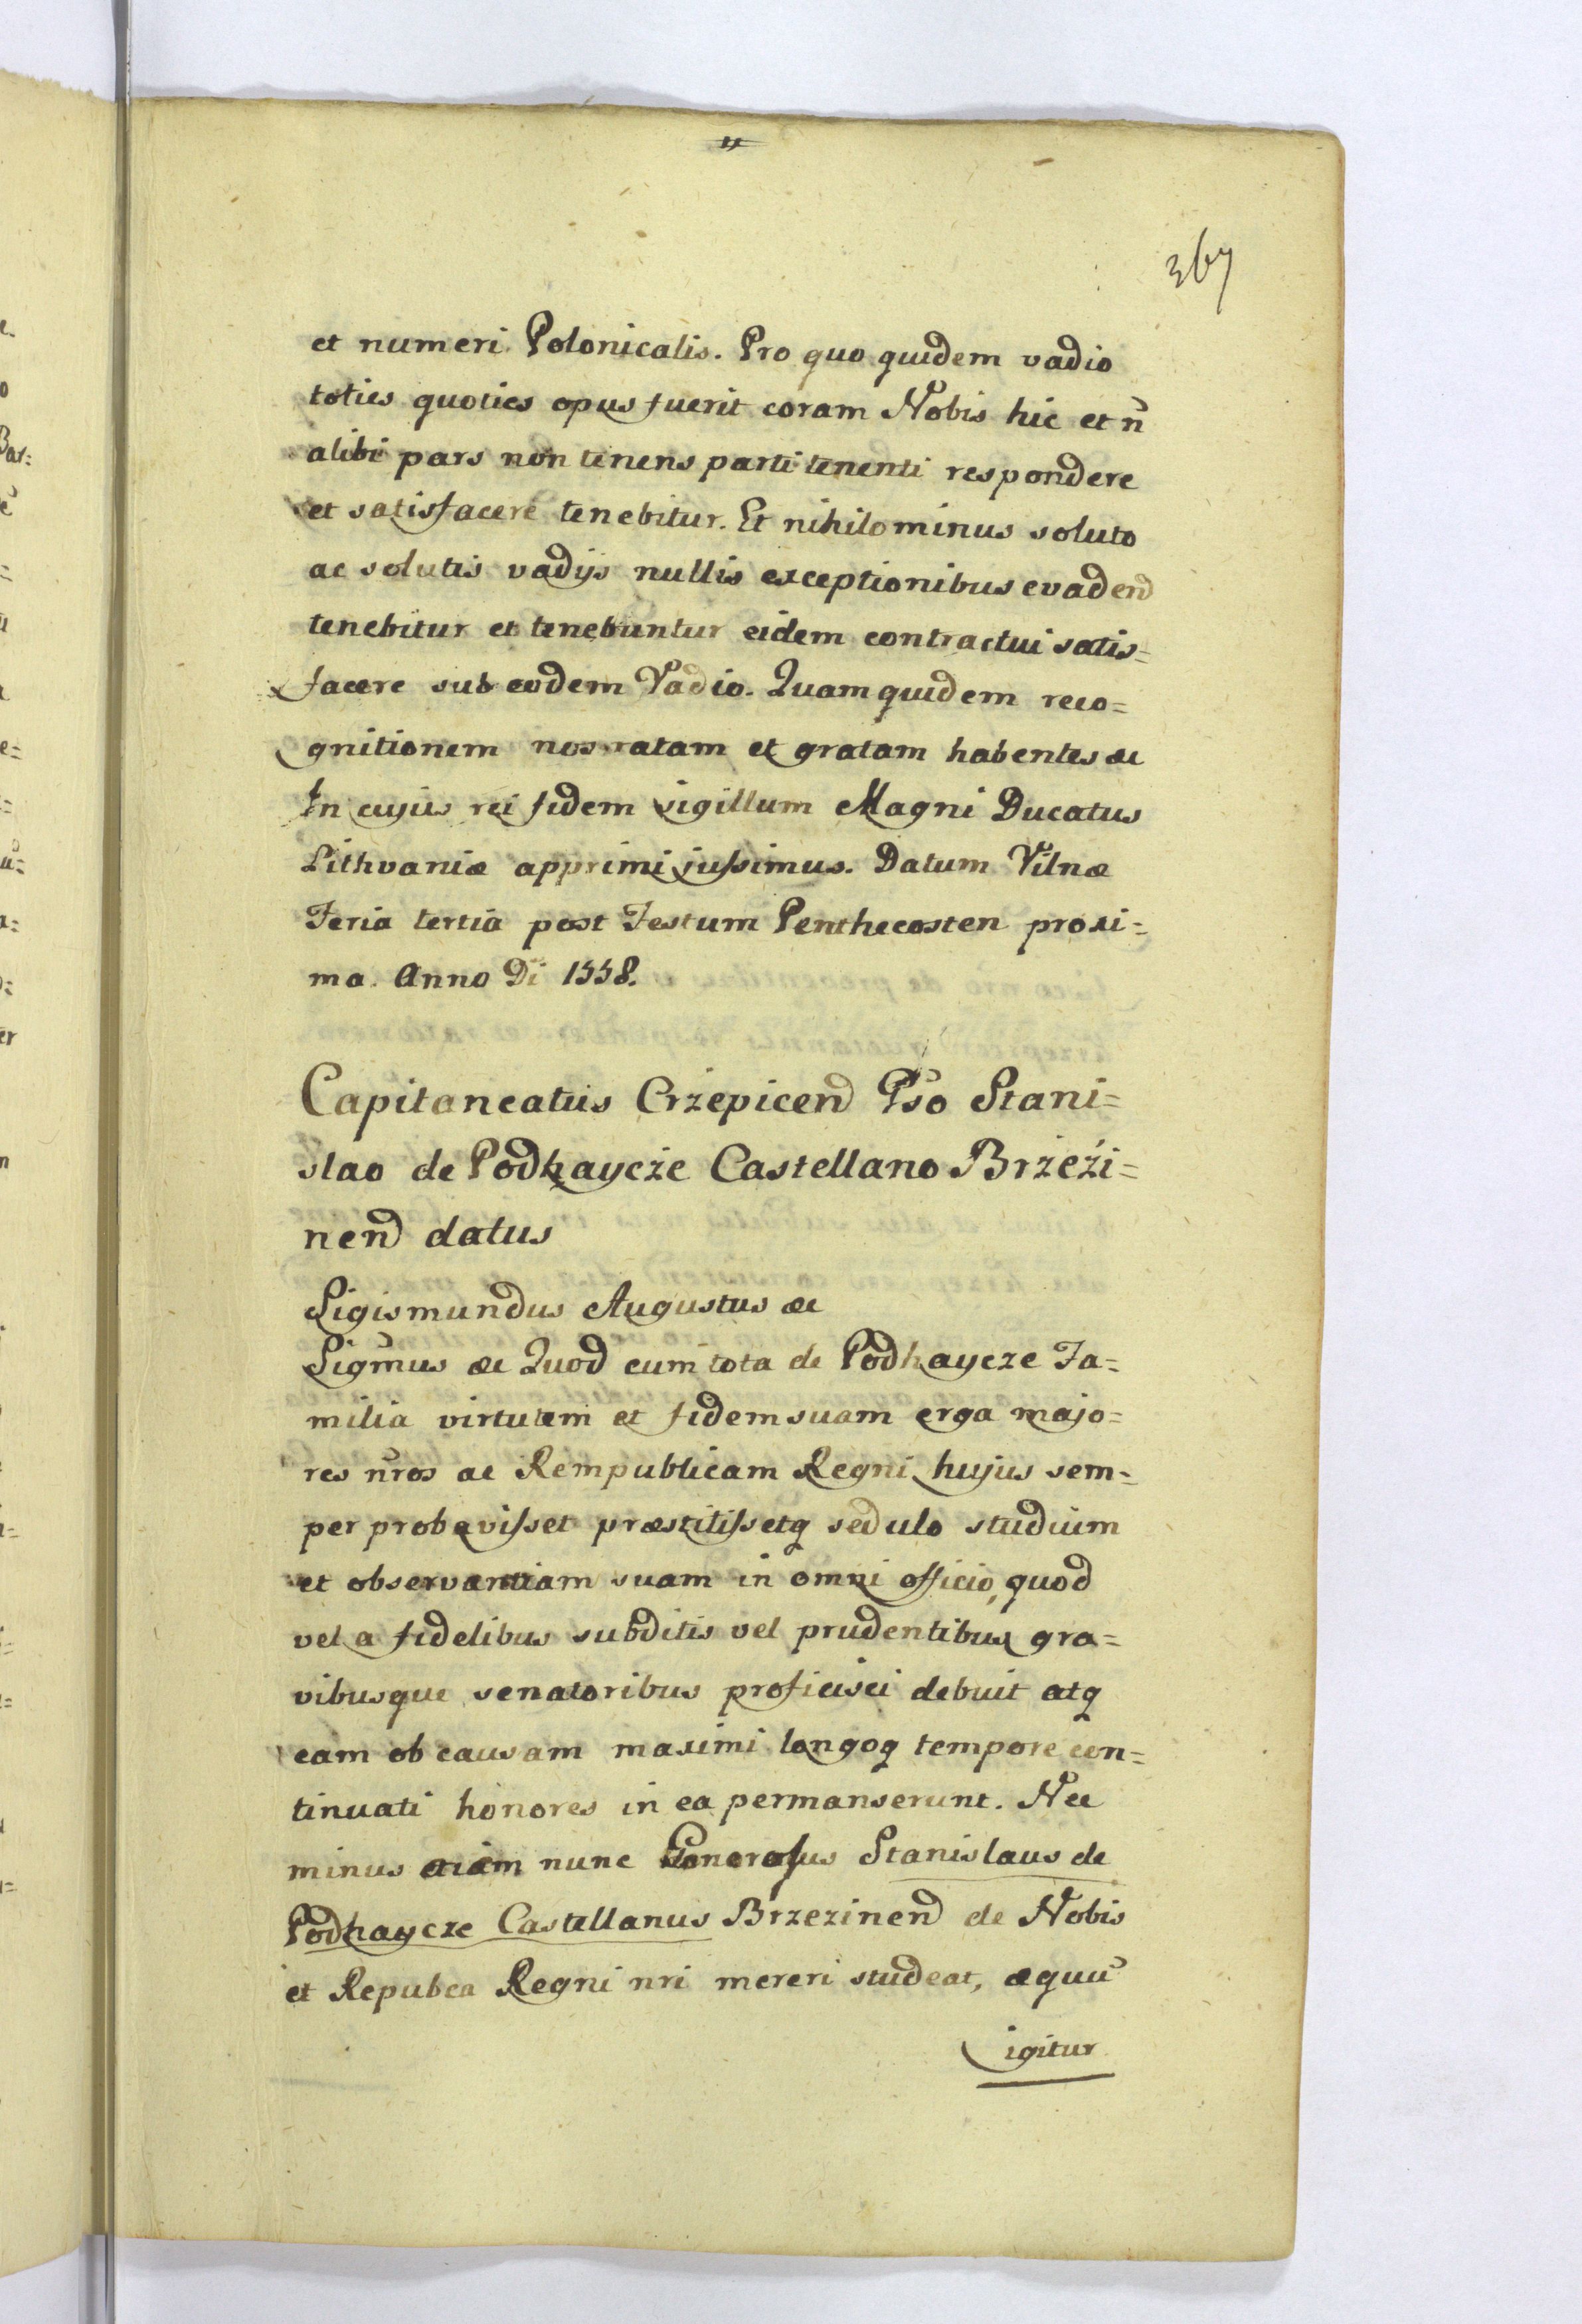 367
et numeri Polonicalis. Pro quo quidem vadio
toties quoties opus fuerit coram Nobis hic et n̄
alibi pars non tenens parti tenenti respondere
et satisfacere tenebitur. Et nihilominus soluto
ac solutis vadijs nullis exceptionibus evadend
tenebitur et tenebuntur eidem contractui satis=
facere sub eodem Vadio. Quam quidem reco=
gnitionem nos ratam et gratam habentes &c
In cujus rei fidem sigillum Magni Ducatus
Lithvaniæ apprimi jussimus. Datum Vilnæ
Feria tertia post Festum Penthecosten proxi=
ma. Anno Di 1558.
Capitaneatus Crzepicend Gso Stani=
slao de Podhaycże Castellano Brzeżi=
nend datus
Sigismundus Augustus &c
Sigm̄us &c Quod cum tota de Podhaycze Fa=
milia virtutem et fidem suam erga majo=
res n̄ros ac Rempublicam Regni hujus sem=
per probavisset præstitissetq sedulo studium
et observantiam suam in omni officio, quod
vel a fidelibus subditis vel prudentibus gra=
vibusque senatoribus proficisci debuit atq
eam ob causam maximi longoq tempore con=
tinuati honores in ea permanserunt. Nec
minus etiam nunc Generosus Stanislaus de
Podhaycze Castellanus Brzezinend de Nobis
et Repubca Regni nri mereri studeat, æquū
igitur